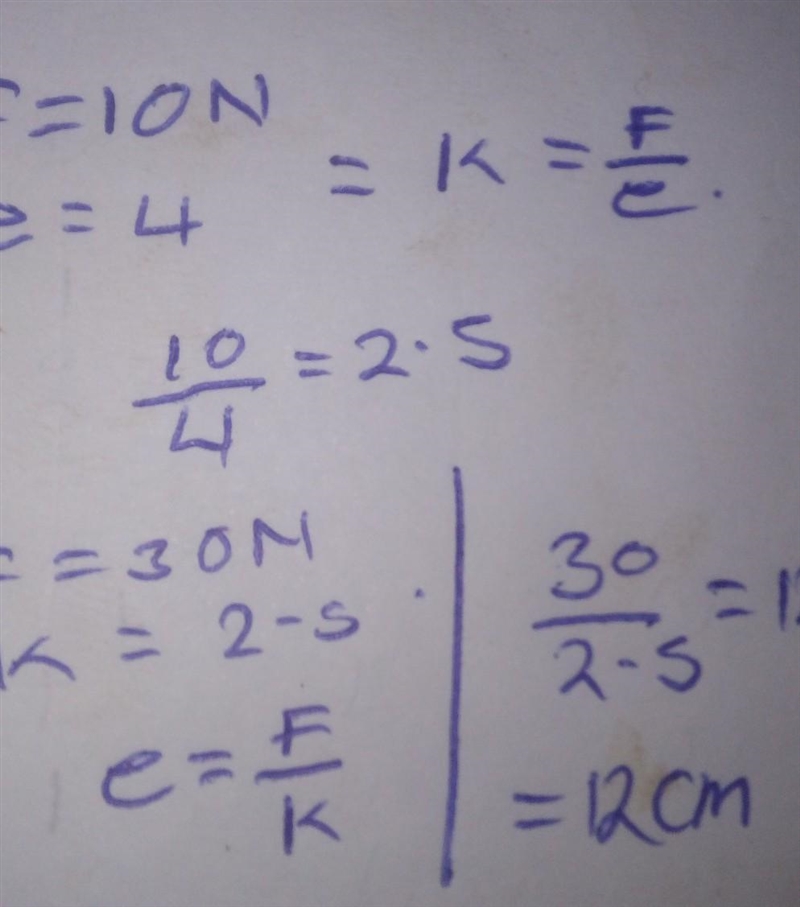 F = 10N
e = 4
= K = F/e.
10/4 = 2.5
F = 30N
K = 2.5
e = F/K
30/2.5 = 12
= 12cm